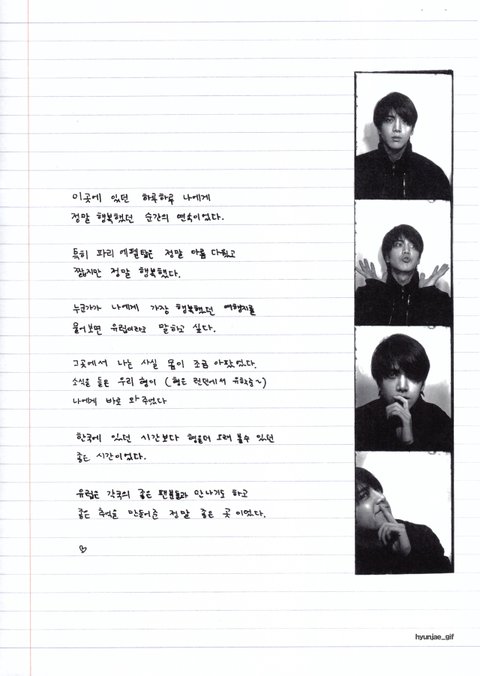 이곳에 있던 하루하루 나에게
정말 행복했던 순간의 연속이었다.
특히 파리 에펠탑은 정말 아름 다웠고
짧지만 정말 행복했다.
누군가가 나에게 가장 행복했던 여행지를
물어보면 유럽이라고 말하고 싶다.
그곳에서 나는 사실 몸이 조금 아팠었다.
소식을 들은 우리 형이 (형은 런던에서 유학중~)
나에게 바로 와주었다
한국에 있던 시간보다 형을더 오래 볼수 있던
좋은 시간이었다.
유럽은 각국의 좋은 팬분들과 만나기도 하고
좋은 추억을 만들어준 정말 좋은 곳 이었다.
♡
hyunjae_gif